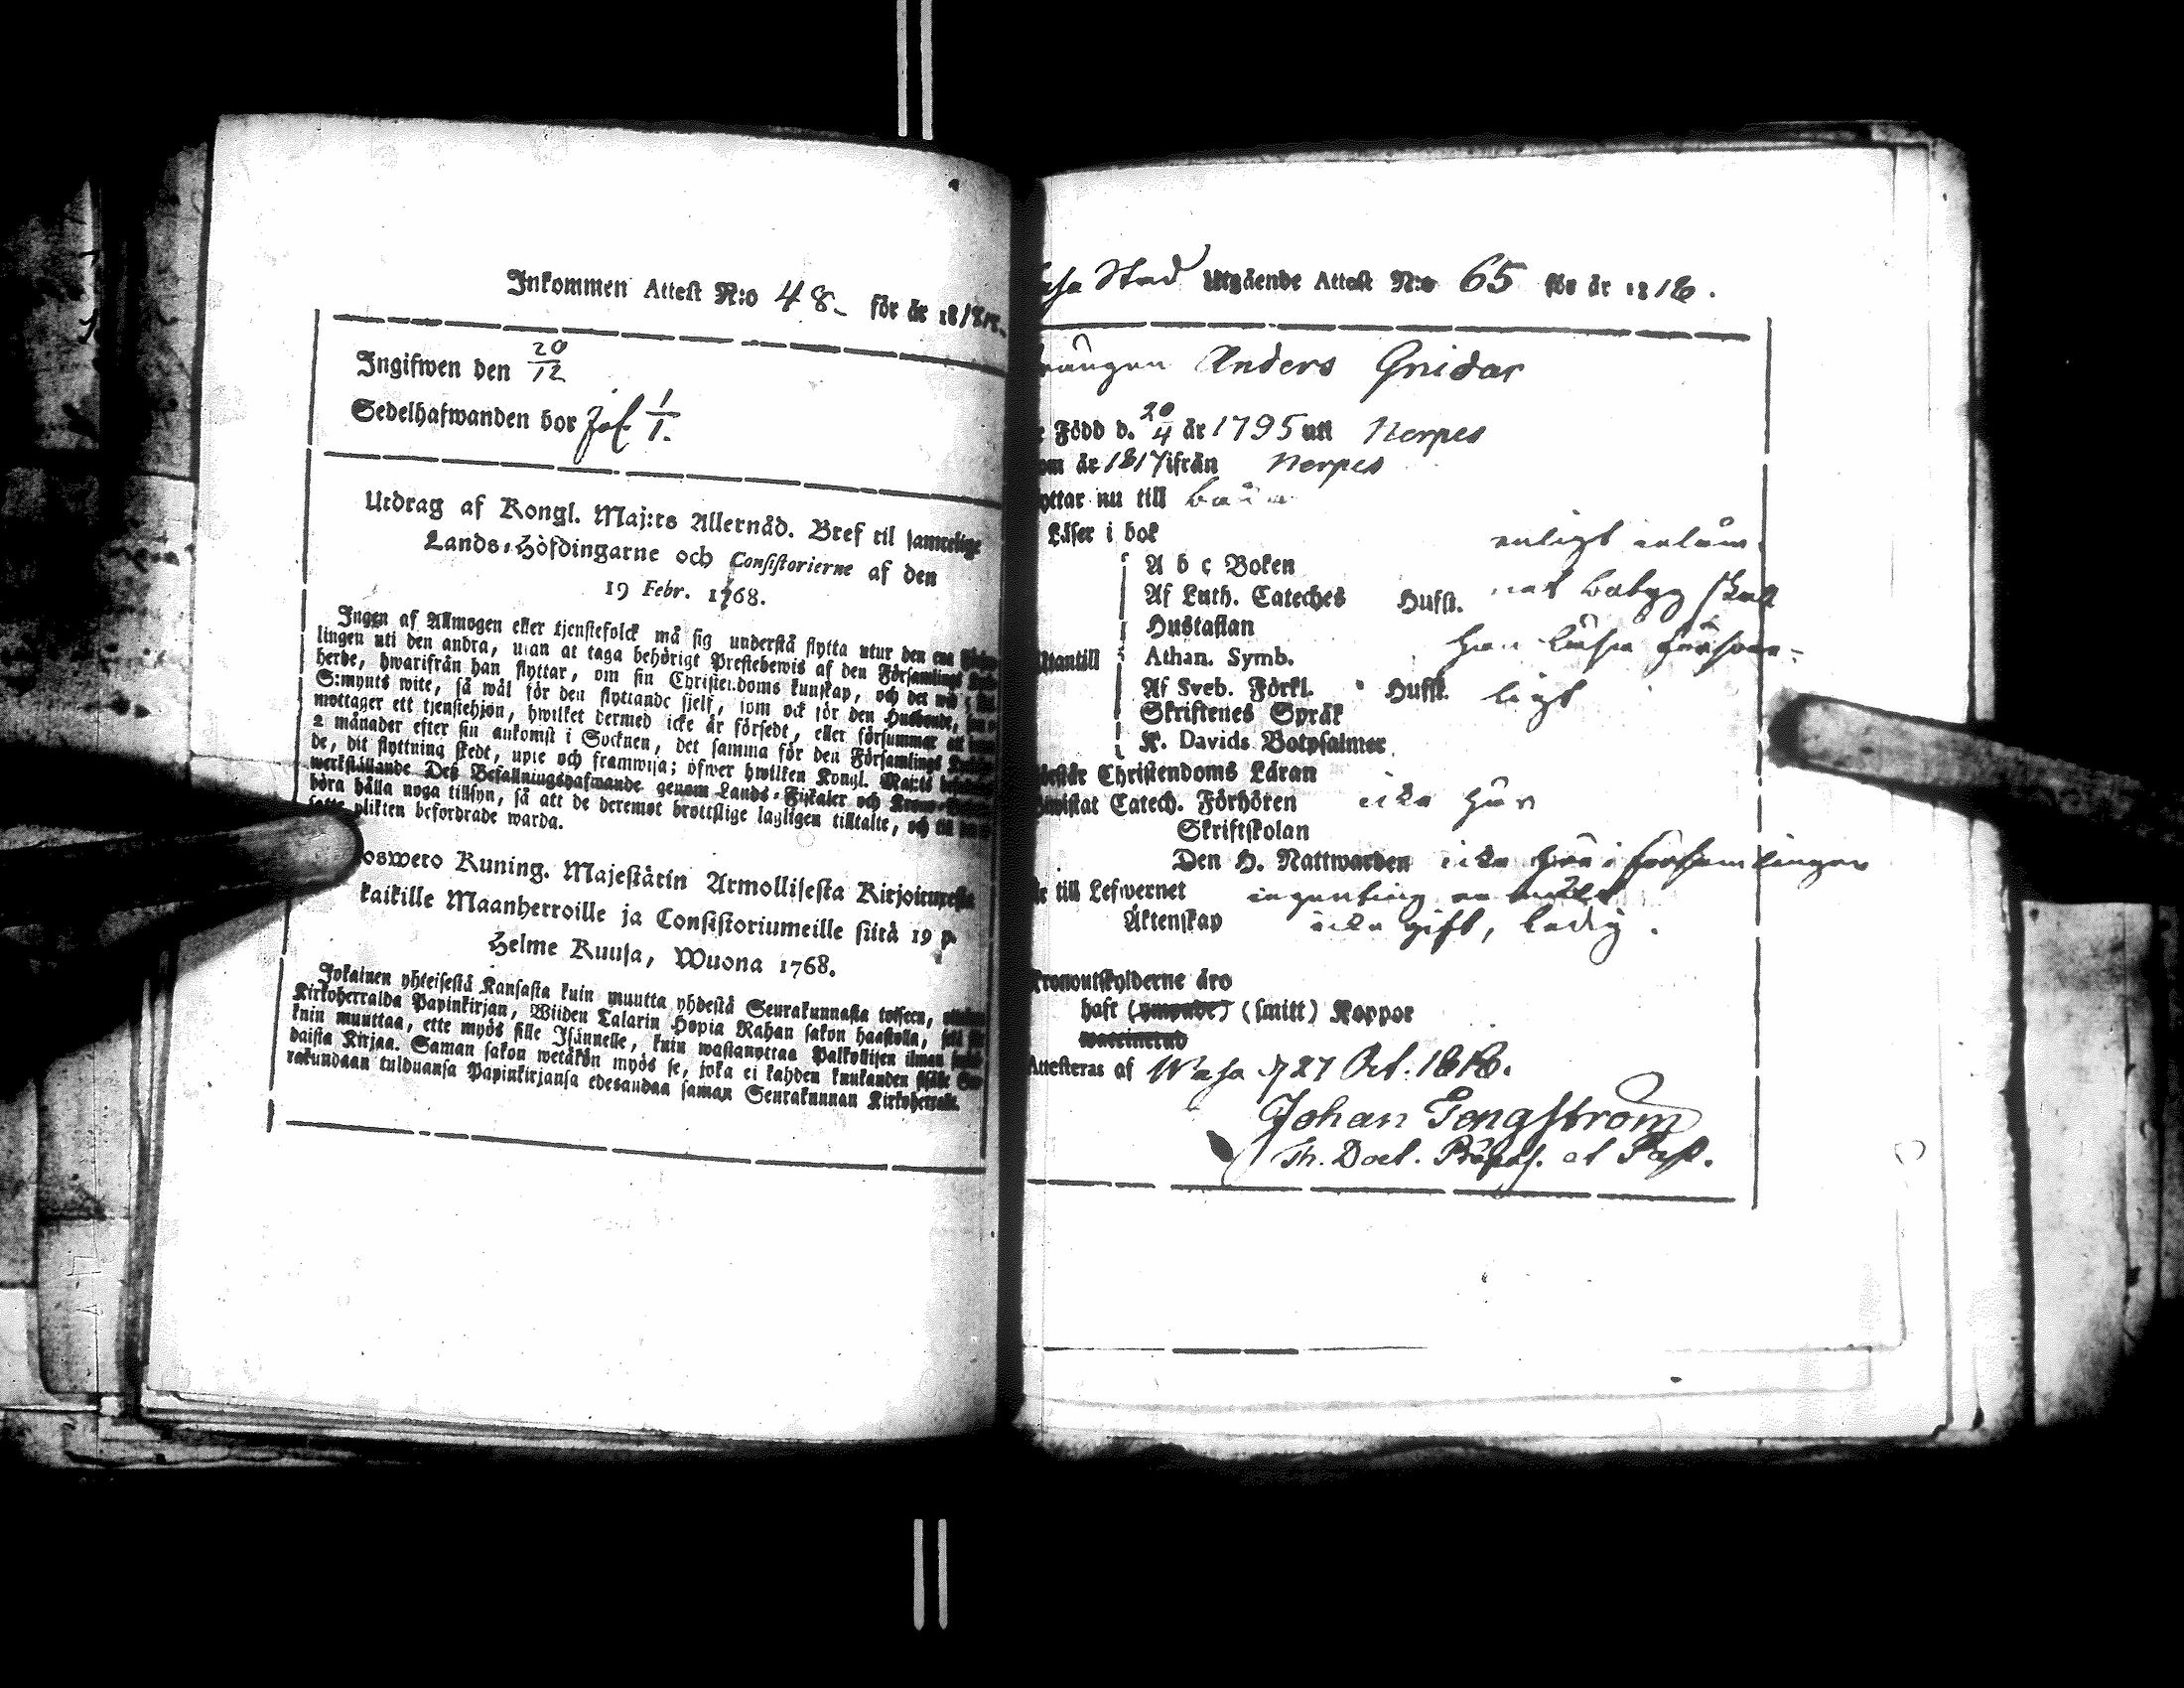 Inkommen Attest N:o 48. för år 18
Ingifwen den 20/12
Sedelhafwanden bor 1/1.
Utdrag af Kongl. Maj:ts Allernåd. Bref til samtelige
Lands-Höfdingarne och Consistorierne af den
19 Febr. 1768.
Ingen af Allmogen eller tjenstefolck må sig understå flytta utur den ena
lingen uti den andra, utan at taga behörigt Prestebewis af den Församlings
herde, hwarifrån han flyttar, om sin Christendoms kunskap, och det wid 5 
S:mynts wite, så wäl för den flyttande sjelf, som ock för den Husbonde, som
mottager ett tjenstehjon, hwilket dermed icke är försedt, eller försummar att
2 månader efter sin ankomst i Socknen, det samma för den Församlings
de, dit flyttning skedt, upte och framwisa; öfwer hwilken Kongl. Maj:ts
werkställande Deß Befallningshafwande genom Lands-Fiskaler och Krono-
böra hålla noga tillsyn, så att de deremot brottslige lagligen tilltalte, och til
plikten befordrade warda.
oswero Kuning. Majestätin Armollisesta Kirjoituxesta
kaikille Maanherroille ja Consistoriumeille siitä 19 p.
Helme Kuusa, Wuona 1768.
Jokainen yhteisestä Kansasta kuin muutta yhdestä Seurakunnasta toiseen,
Kirkoherralda Papinkirjan, Wiiden Talarin Hopia Rahan sakon haastolla,
kuin muuttaa, ette myös sille Isännelle, kuin wastanottaa Palkollisen ilman
daista Kirjaa. Saman sakon wetäkön myös se, joka ei kahden kuukauden
rakundaan tulduansa Papinkirjansa edesandaa saman Seurakunnan Kirkoherralle.
Stad Utgående Attest N:o 65 för år 1818.
Anders Gnidar
Född d. 20/4 år 1795 uti Nerpes
år 1817 ifrån Nerpes
nu till
Läser i bok enligt
A b c Boken
Af Luth. Cateches Hufst. betyg skall
Hustaflan han
Athan. Symb.
Af Sveb. Förkl. Hufst. ligt
Skriftenes Språk
K. Davids Botpsalmer
Christendoms Läran
Catech. Förhören icke här
Skriftskolan
Den H. Nattwarden icke här i församlingen
till Lefwernet ingenting
Äktenskap icke gift, ledig.
Kronoutskylderne äro
haft (smitt) Koppor
Attesteras af Wasa d 27 Oct. 1818.
Johan Tengström
Th. Doct. Präpos. et Past.